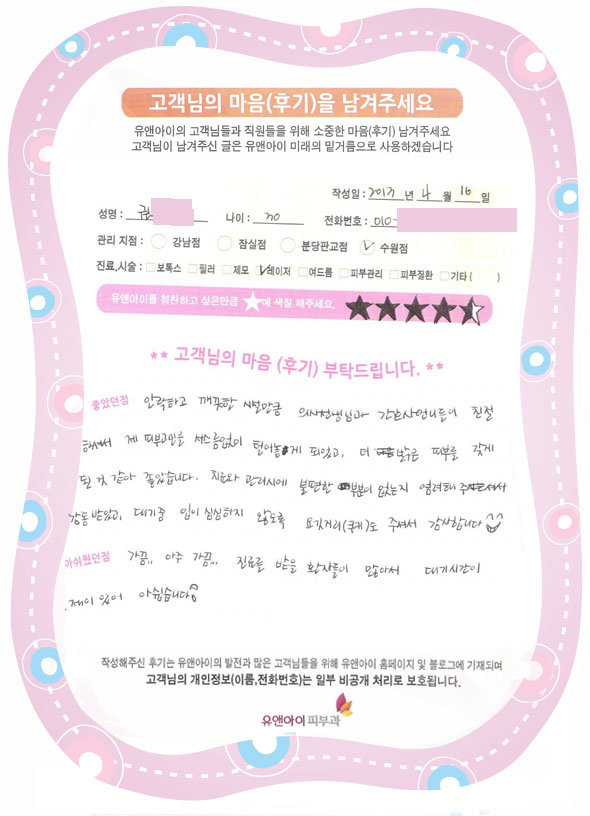 고객님의 마음(후기)을 남겨주세요
유앤아이의 고객님들과 직원들을 위해 소중한 마음(후기) 남겨주세요
고객님이 남겨주신 글은 유앤아이 미래의 밑거름으로 사용하겠습니다
작성일 : 2013 년 4 월 16 일
성명 : 나이 : 30 전화번호 : 010-
관리 지점 : 강남점 잠실점 분당판교점 수원점
진료,시술 : 보톡스 필러 제모 레이저 여드름 피부관리 피부질환 기타 ( )
유앤아이를 칭찬하고 싶은만큼 ★에 색칠 해주세요.
** 고객님의 마음 (후기) 부탁드립니다. **
좋았던점 안락하고 깨끗한 시설만큼 의사선생님과 간호사언니들이 친절
하셔서 제 피부고민을 서스름없이 털어놓게 되었고, 더 밝은 피부를 갖게
된 것 같아 좋았습니다. 진료와 관리시에 불편한 부분이 없는지 염려해 주셔서
감동 받았고, 대기중 입이 심심하지 않도록 요깃거리(쿠키)도 주셔서 감사합니다
아쉬웠던점 가끔,, 아주 가끔,, 진료를 받을 환자들이 많아서 대기시간이
길어 아쉽습니다
작성해주신 후기는 유앤아이의 발전과 많은 고객님들을 위해 유앤아이 홈페이지 및 블로그에 기재되며
고객님의 개인정보(이름,전화번호)는 일부 비공개 처리로 보호됩니다.
유앤아이피부과